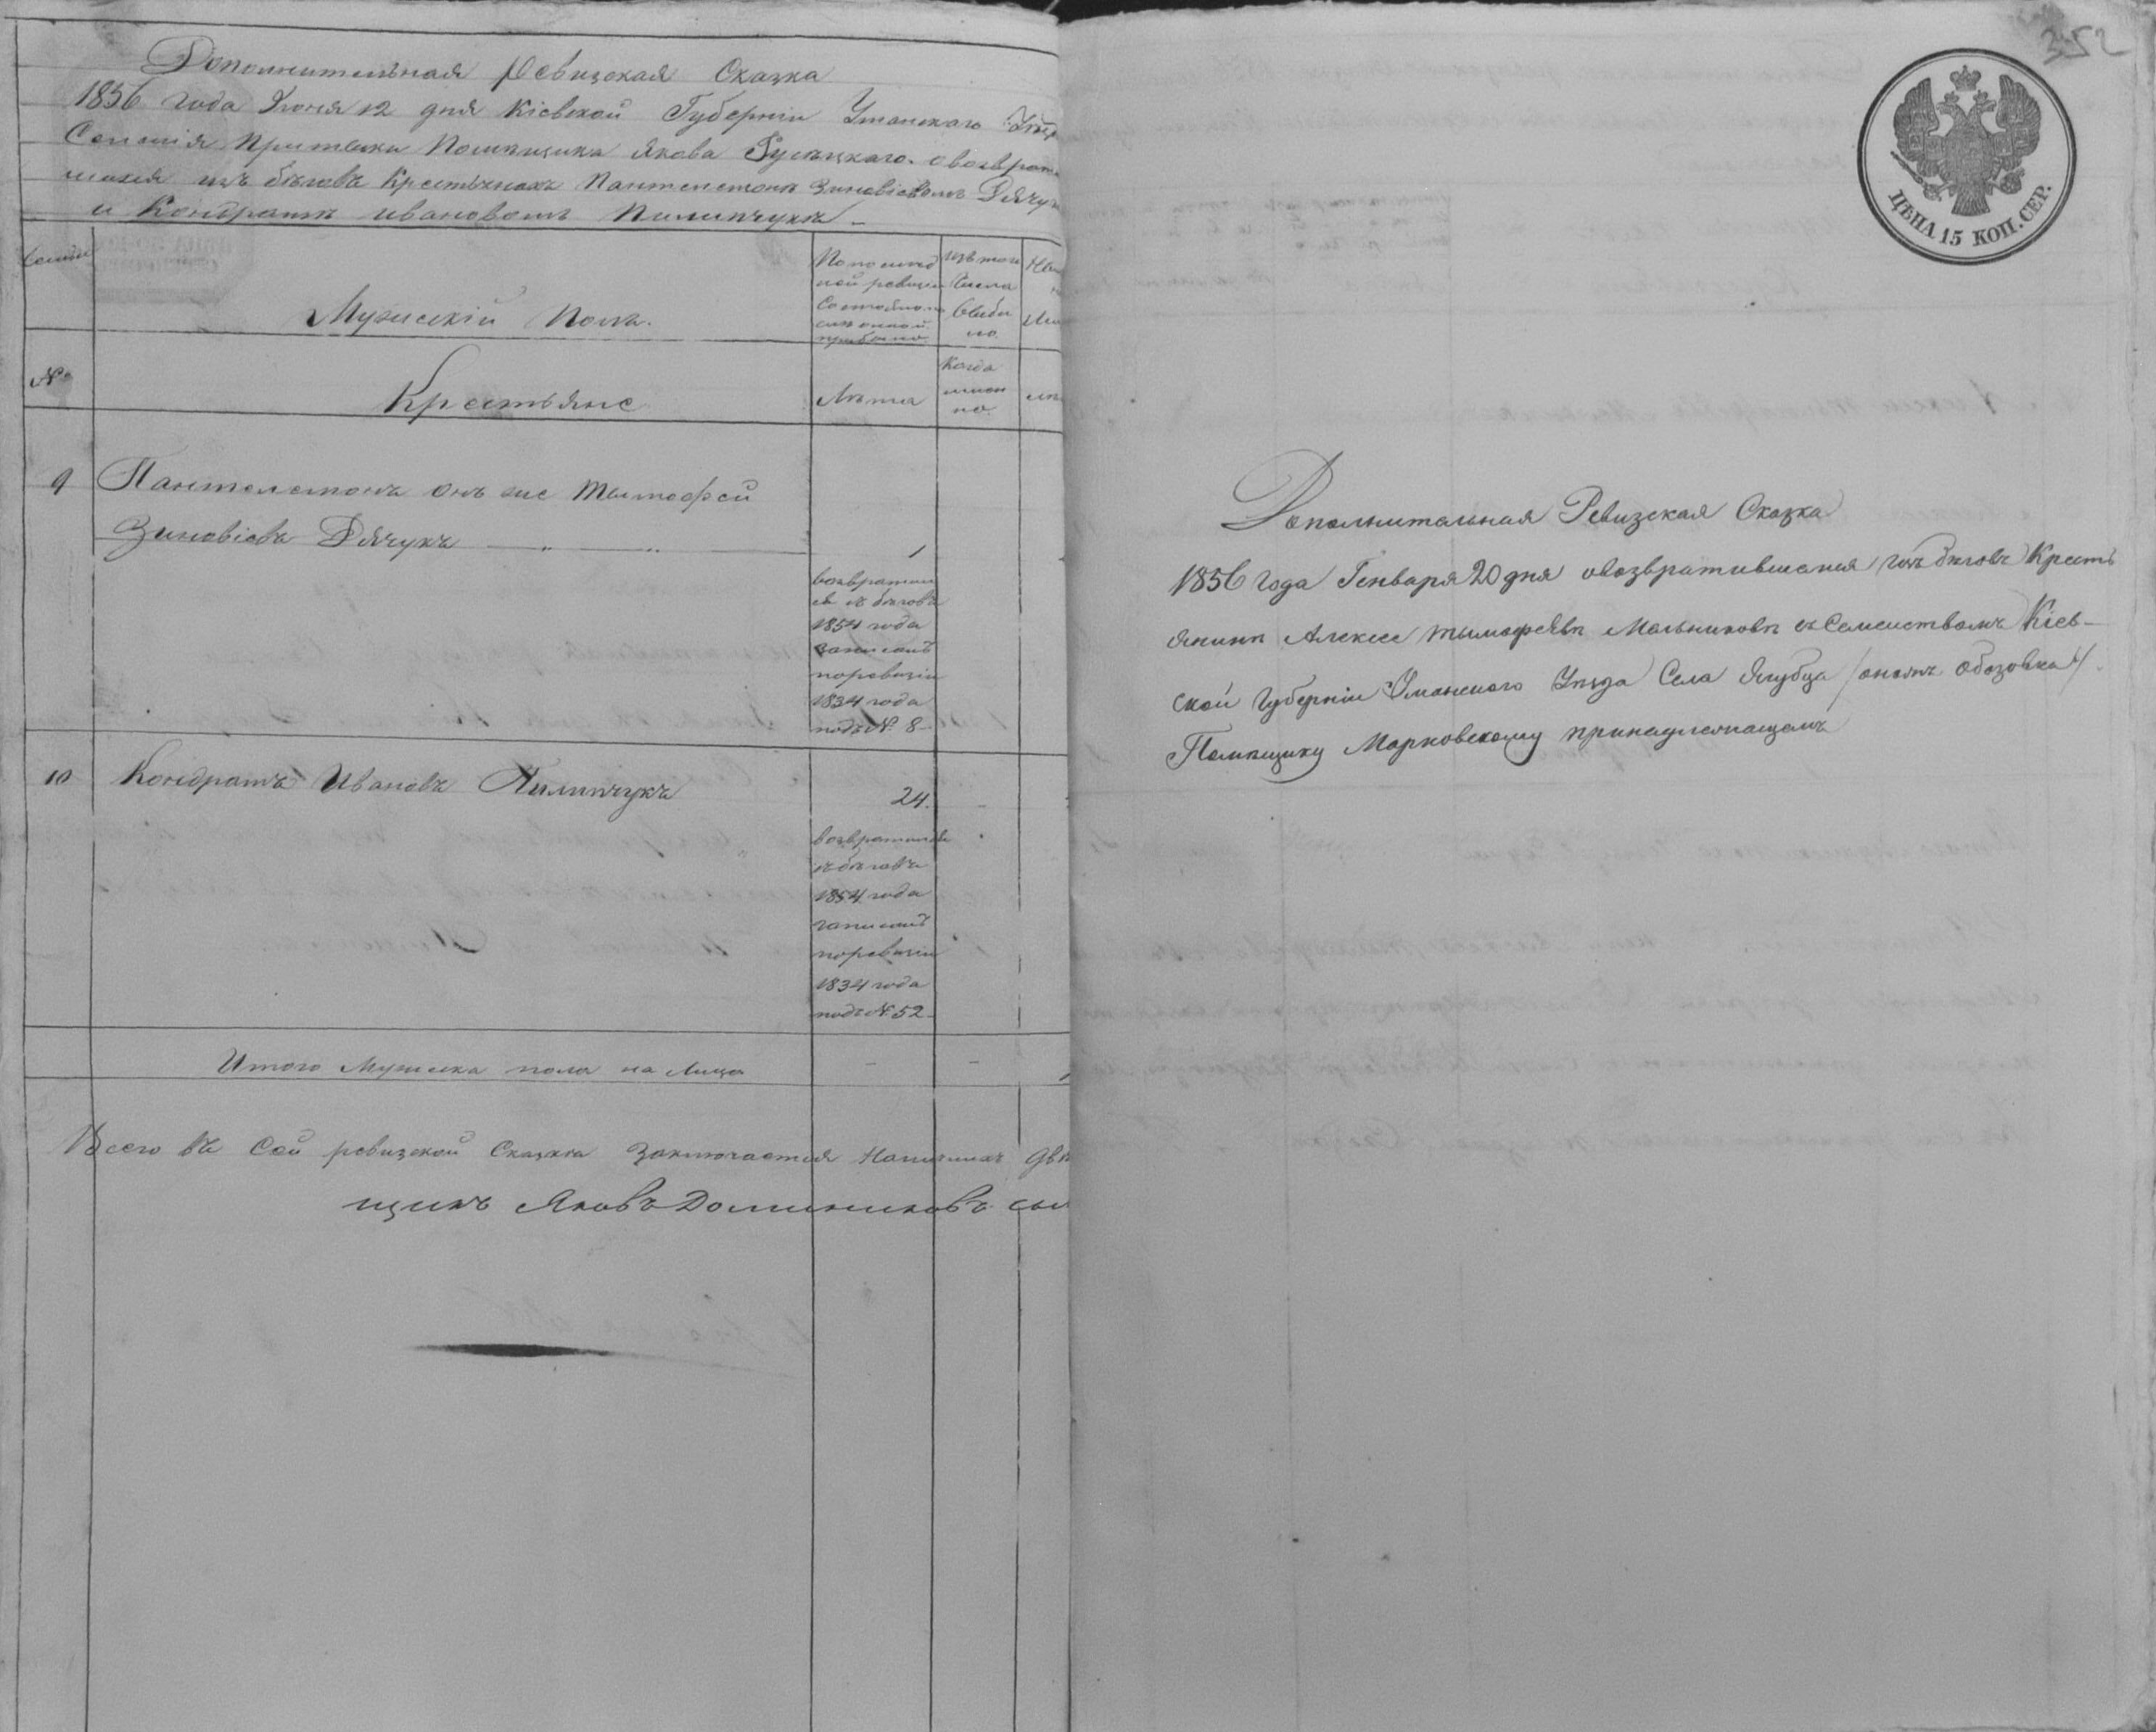 Дополнительная Ревизская Сказка
1856 года Іюня 12 дня Кіевской Губерніи Уманскаго
Селенія Притыки Помѣщика Якова о возврати
шихся изъ бѣговъ Крестьянахъ Пантелемонѣ Зиновіевомъ Дячук
и Кондратѣ Ивановомъ Пилипчукѣ
Семьи
Мужескій Полъ.
По послѣд
ней ревизіи
Состояло и
послѣ оной
прибыло.
Изъ того
Числа
выбы
ло.
№
Крестьяне
Лѣта
Когда
имен
но.
9
Пантелемонъ онъ же Тымофей
Зиновіевъ Дячукъ
1
возвратил
ся съ бѣговъ
1854 года
записанъ
по ревизіи
1834 года
подъ № 8
10
Кондратъ Ивановъ Пилипчукъ
24.
возвратился
съ бѣговъ
1854 года
записанъ
по ревизіи
1834 года
подъ № 52
Итого Мужеска пола на Лицо
Всего въ Сей ревизской Сказкѣ Заключается Наличныхъ двѣ
щикъ Яковъ Доминиковъ сы
352
ЦѢНА 15 КОП. СЕР.
Дополнительная Ревизская Сказка
1856 года Генваря 20 дня о возвратившемся изъ бѣговъ Кресть
янинѣ Алексее Тымофеевѣ Мельниковѣ съ Семействомъ Кіев-
ской Губерніи Уманскаго Уѣзда Села Ягубца /онъ же Обозовка/
Помѣщику Марковскому принадлежащемъ